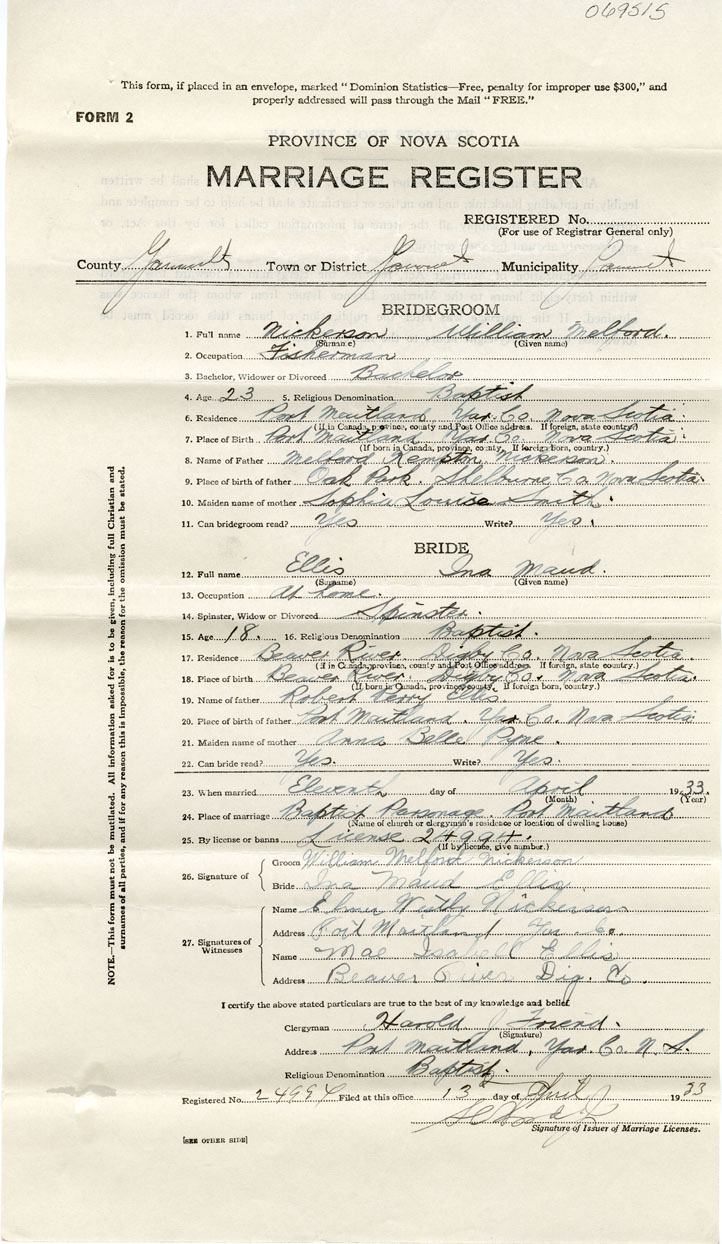 069515
This form, if placed in an envelope, marked "Dominion Statistics—Free, penalty for improper use $300," and
properly addressed will pass through the Mail "FREE."
FORM 2
PROVINCE OF NOVA SCOTIA
MARRIAGE REGISTER
REGISTERED No.
(For use of Registrar General only)
County Yarmouth Town or District Yarmouth Municipality Yarmouth
BRIDEGROOM
1. Full name Nickerson William Melford.
(Surname) (Given name)
2. Occupation Fisherman
3. Bachelor, Widower or Divorced Bachelor
4. Age 23 5. Religious Denomination Baptist
6. Residence Port Maitland Yar. Co. Nova Scotia.
(If in Canada, province, county and Post Office address. If foreign, state country.)
7. Place of Birth Port Maitland Yar. Co. Nova Scotia.
(If born in Canada, province, county. If foreign born, country.)
8. Name of Father Melford Kempton Nickerson.
9. Place of birth of father Oak Park, Shelburne Co. Nova Scotia.
10. Maiden name of mother Sophia Louise Smith.
11. Can bridegroom read? Yes Write? Yes.
BRIDE
12. Full name Ellis Ina Maud.
(Surname) (Given name)
13. Occupation At home.
14. Spinster, Widow or Divorced Spinster.
15. Age 18. 16. Religious Denomination Baptist.
17. Residence Beaver River, Digby Co. Nova Scotia.
(If in Canada, province, county and Post Office address. If foreign, state country.)
18. Place of birth Beaver River. Digby Co. Nova Scotia.
(If born in Canada, province, county. If foreign born, country.)
19. Name of father Robert Perry Ellis.
20. Place of birth of father Port Maitland. Yar. Co. Nova Scotia.
21. Maiden name of mother Anna Belle Pyne.
22. Can bride read? Yes. Write? Yes.
23. When married Eleventh day of April 1933.
(Month) (Year)
24. Place of marriage Baptist Parsonage, Port Maitland
(Name of church or clergyman's residence or location of dwelling house)
25. By license or banns License 24994.
(If by license, give number.)
26. Signature of
Groom William Melford Nickerson
Bride Ina Maud Ellis
27. Signatures of Witnesses
Name Elmer Nickerson
Address Port Maitland Yar. Co.
Name Mae Isabell Ellis
Address Beaver River Dig. Co.
I certify the above stated particulars are true to the best of my knowledge and belief.
Clergyman Harold J Friend.
(Signature)
Address Port Maitland, Yar. Co. N. S.
Religious Denomination Baptist.
Registered No. 24994 Filed at this office 13 day of April 1933
Signature of Issuer of Marriage Licenses.
[SEE OTHER SIDE]
NOTE.—This form must not be mutilated. All information asked for is to be given, including full Christian and
surnames of all parties, and if for any reason this is impossible, the reason for the omission must be stated.